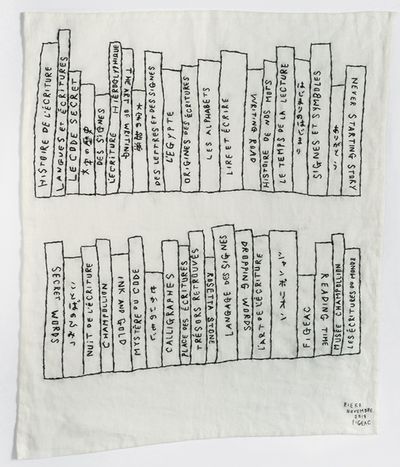 HISTOIRE DE L'ÉCRITURE
LANGUES ET ÉCRITURES
LE CODE SECRET
文字の歴史
DES SIGNES
L'ÉCRITURE HIÉROGLYPHIQUE
THE ART OF WRITING
DES LETTRES ET DES SIGNES
L'EGYPTE
ORIGINES DES ÉCRITURES
LES ALPHABETS
LIRE ET ÉCRIRE
WRITING ROAD
HISTOIRE DE NOS MOTS
LE TEMPS DE LA LECTURE
SIGNES ET SYMBOLES
NEVER STARTING STORY
SECRET WORDS
NUIT DE L'ÉCRITURE
CHAMPOLLION
INK AND GOLD
MYSTÈRE DU CODE
CALLIGRAPHES
PLACE DES ÉCRITURES
TRÉSORS RETROUVÉS
ROSETTA STONE
LANGAGE DES SIGNES
DROPPING WORDS
L'ART DE L'ÉCRITURE
FIGEAC
READING TIME
MUSÉE CHAMPOLLION
LES ÉCRITURES DU MONDE
RIEKO
NOVEMBRE
2015
FIGEAC